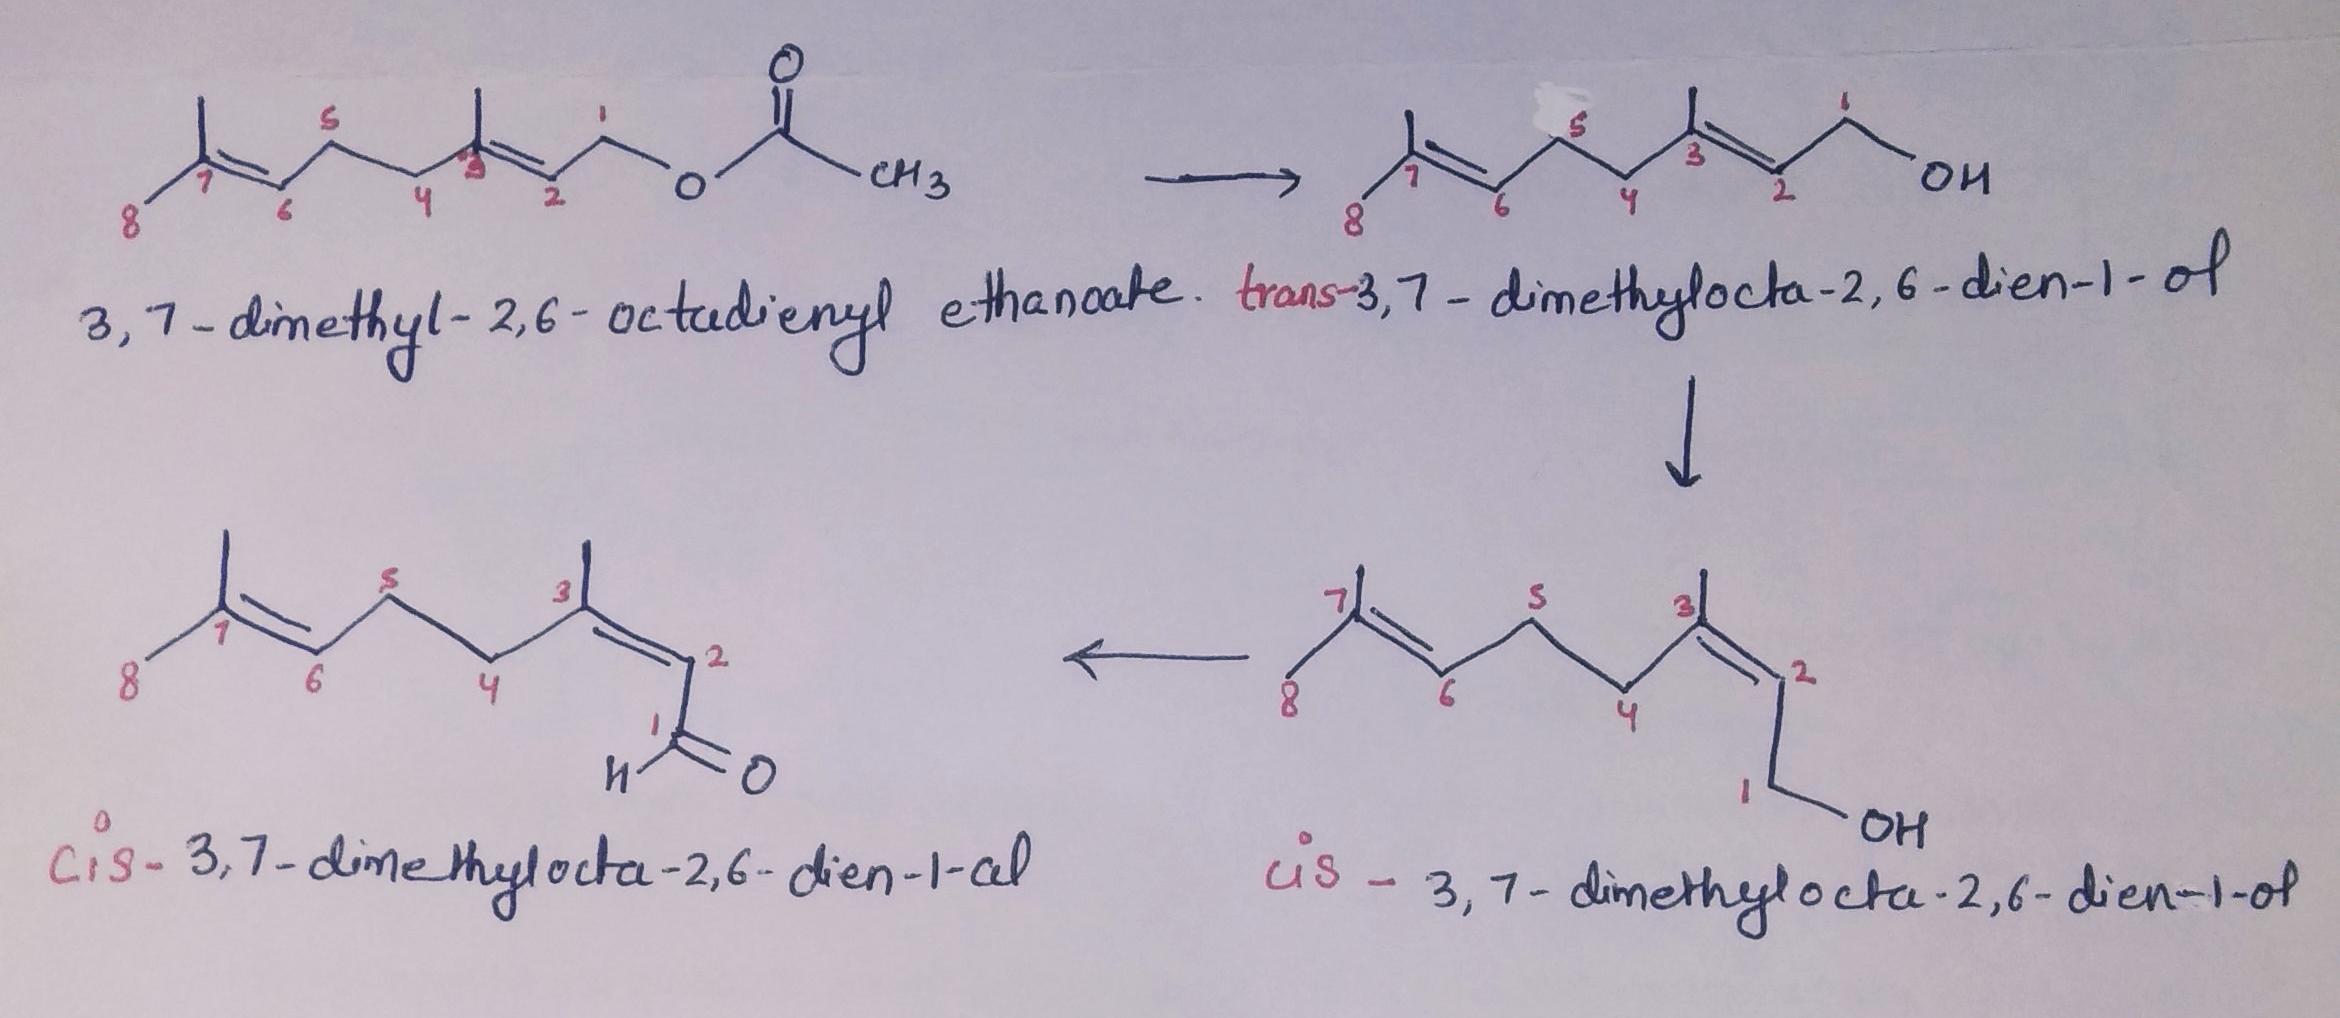 O
5 1 5 1
7 3 CH3 7 3 OH
8 6 4 2 O 8 6 4 2
3,7-dimethyl-2,6-octadienyl ethanoate. trans-3,7-dimethylocta-2,6-dien-1-ol
5 3 7 5 3
7 2 2
8 6 4 8 6 4
1 1
H O OH
cis-3,7-dimethylocta-2,6-dien-1-al cis-3,7-dimethylocta-2,6-dien-1-ol